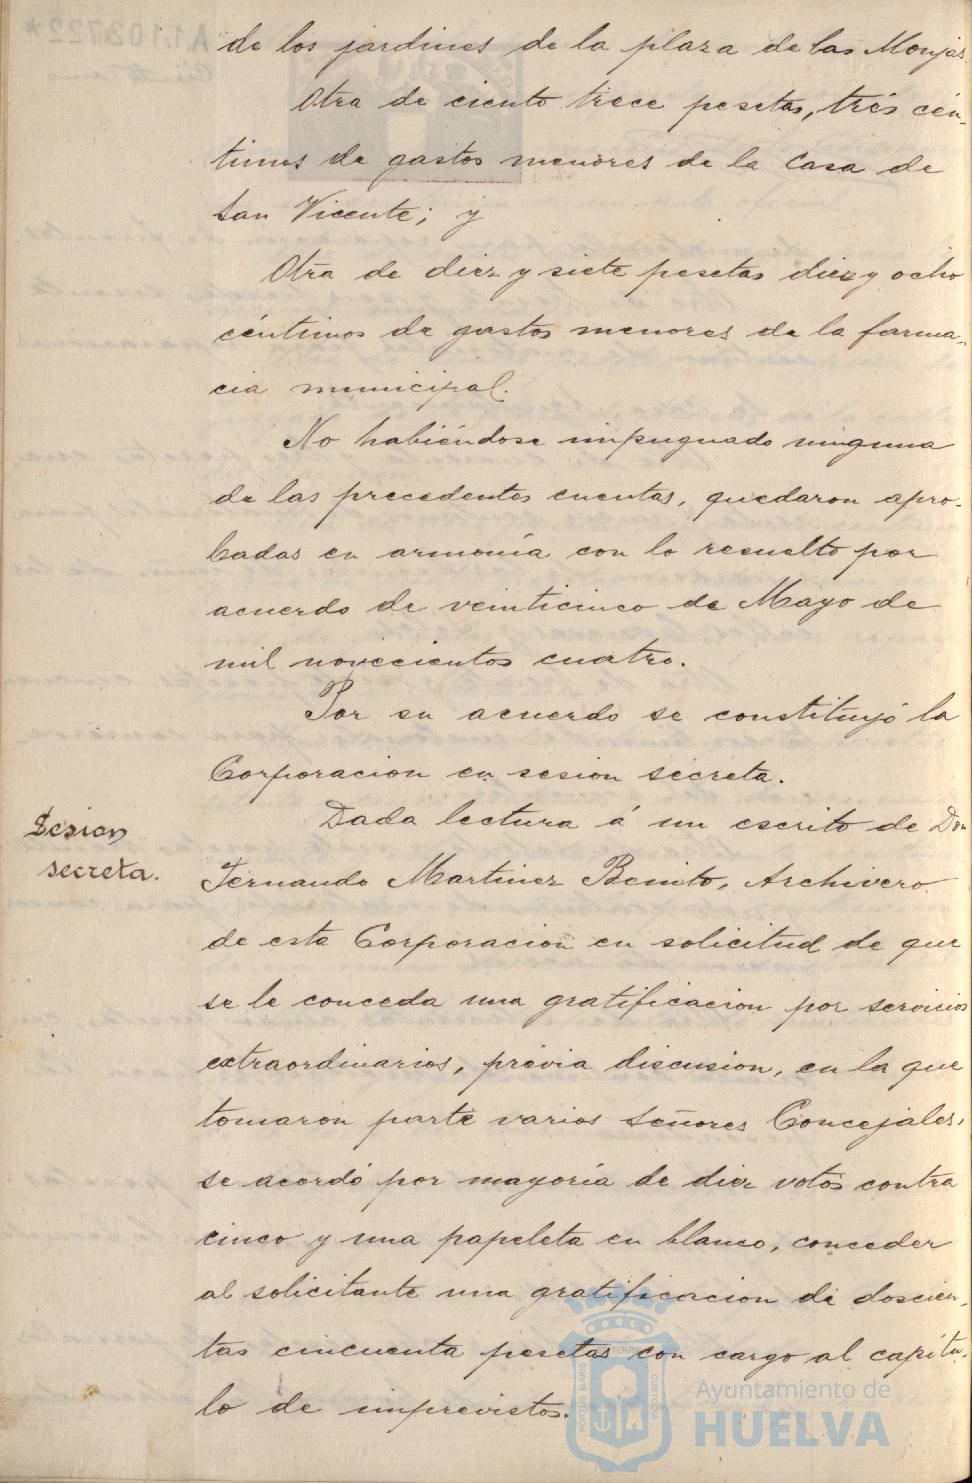 de los jardines de la plaza de las Monjas.
Otra de ciento trece pesetas, tres cén-
timos de gastos menores de la Casa de
San Vicente; y
Otra de diez y siete pesetas diez y ocho
céntimos de gastos menores de la farma-
cia municipal.
No habiéndose impugnado ninguna
de las precedentes cuentas, quedaron apro-
badas en armonía con lo resuelto por
acuerdo de veinticinco de Mayo de
mil novecientos cuatro.
Por su acuerdo se constituyó la
Corporacion en sesion secreta.
Sesion
secreta.
Dada lectura á un escrito de Don
Fernando Martinez Benito, Archivero
de esta Corporacion en solicitud de que
se le conceda una gratificacion por servicios
extraordinarios, prévia discusion, en la que
tomaron parte varios Señores Concejales,
se acordó por mayoría de diez votos contra
cinco y una papeleta en blanco, conceder
al solicitante una gratificacion de doscien-
tas cincuenta pesetas con cargo al capítu-
lo de imprevistos.
Ayuntamiento de
HUELVA